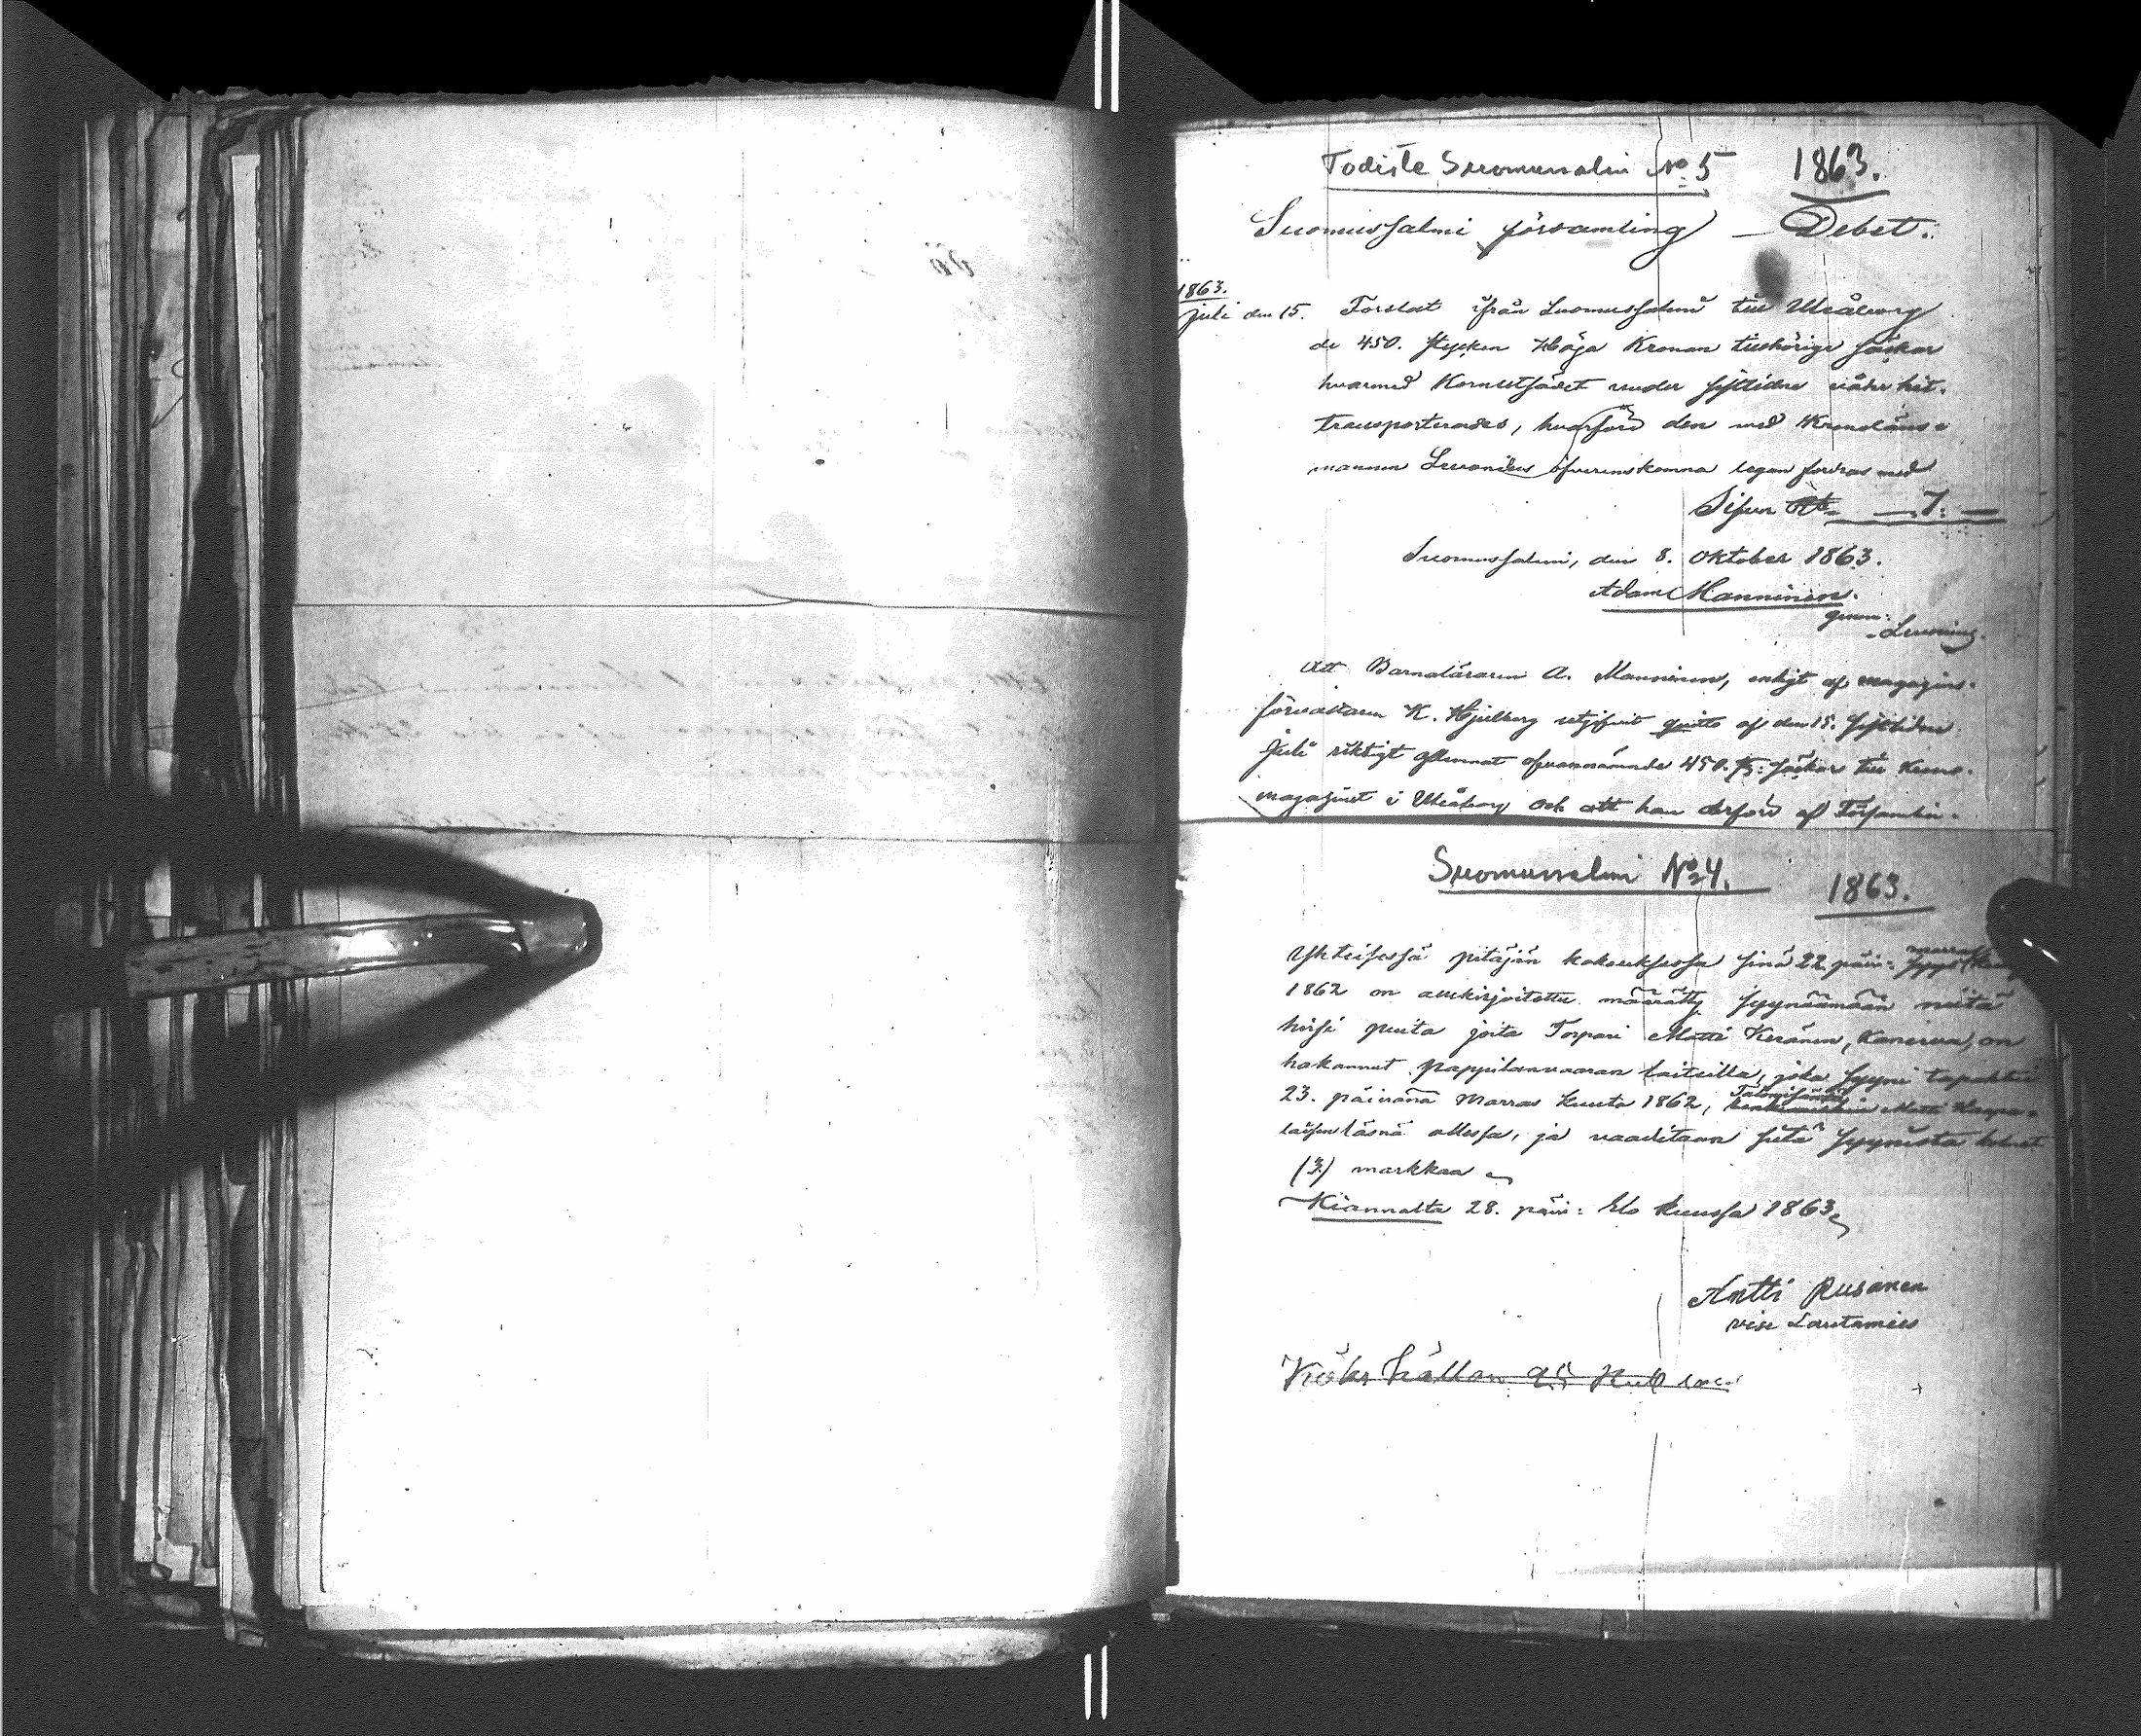 Todiste Suomussalmi No 5 1863.
Suomussalmi församling – Debet.
1863.
Juli den 15. Forslat ifrån Suomussalmi till Uleåborg
de 450. stycken Höga Kronan tillhörige säckar
hvarmed Kornutsädet under sistlidne vår hit-
transporterades, hvarföre den med Kronoläns-
mannen Levonius öfverenskomna legan fordras med
Silfver Rb. — 7: —
Suomussalmi, den 8. Oktober 1863.
Adam Manninen.
genom:
Att Barnaläraren A. Manninen, enligt af magazins-
förvaltaren K. Hjelberg utgifvit qvitto af den 15. sistlidne
Juli riktigt aflemnat ofvannämnde 450. säckar till
magazinet i Uleåborg och att han derföre af Församlin-
Suomussalmi No 4. 1863.
Yhteisessä pitäjän kokouksessa sinä 22 päiv:
1862 on allekirjoitettu määrätty syynäämään niitä
hirsi puita joita Torpari Matti Keränen, Kanerva, on
hakannut pappilanvaaran laiteilla, joka syyni tapahtui
23. päivänä Marras kuuta 1862, Matti
läsnä ollessa, ja vaaditaan siitä syynistä
(3.) markkaa
Kiannalta 28. päiv: Elo kuussa 1863
Antti Rusanen
vise Lautamies